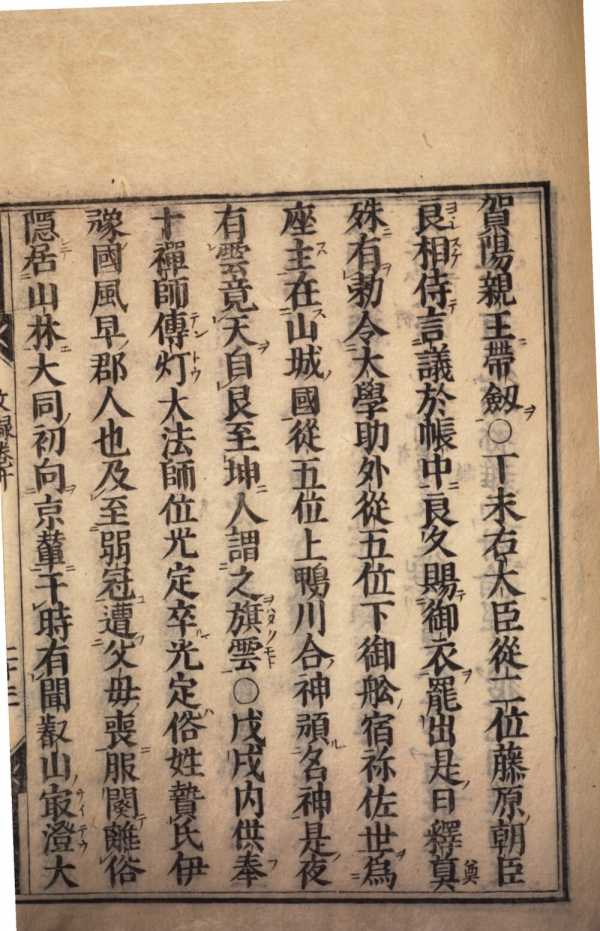 賀陽親王帶劔○丁未右大臣從二位藤原朝臣
良相侍言議於帳中良久賜御衣罷出是日釋奠
殊有勅令大學助外從五位下御舩宿祢佐世爲
座主在山城國從五位上鴨川合神預名神是夜
有雲竟天自艮至坤人謂之旗雲○戊戌内供奉
十禪師傳灯大法師位光定卒光定俗姓贄氏伊
豫國風早郡人也及至弱冠遭父母喪服闋離俗
隠居山林大同初向京輦于時有聞叡山㝡澄大
文録卷十